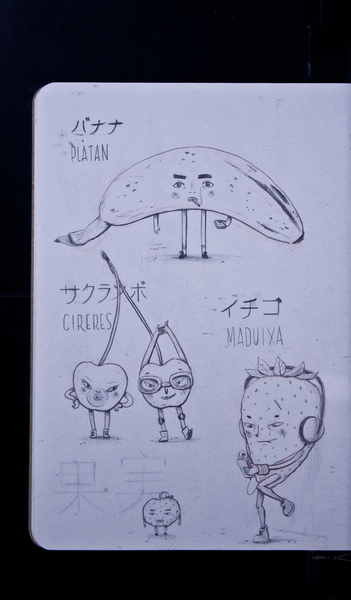 バナナ
PLÀTAN
サクランボ
CIRERES
イチゴ
MADUIXA
果実